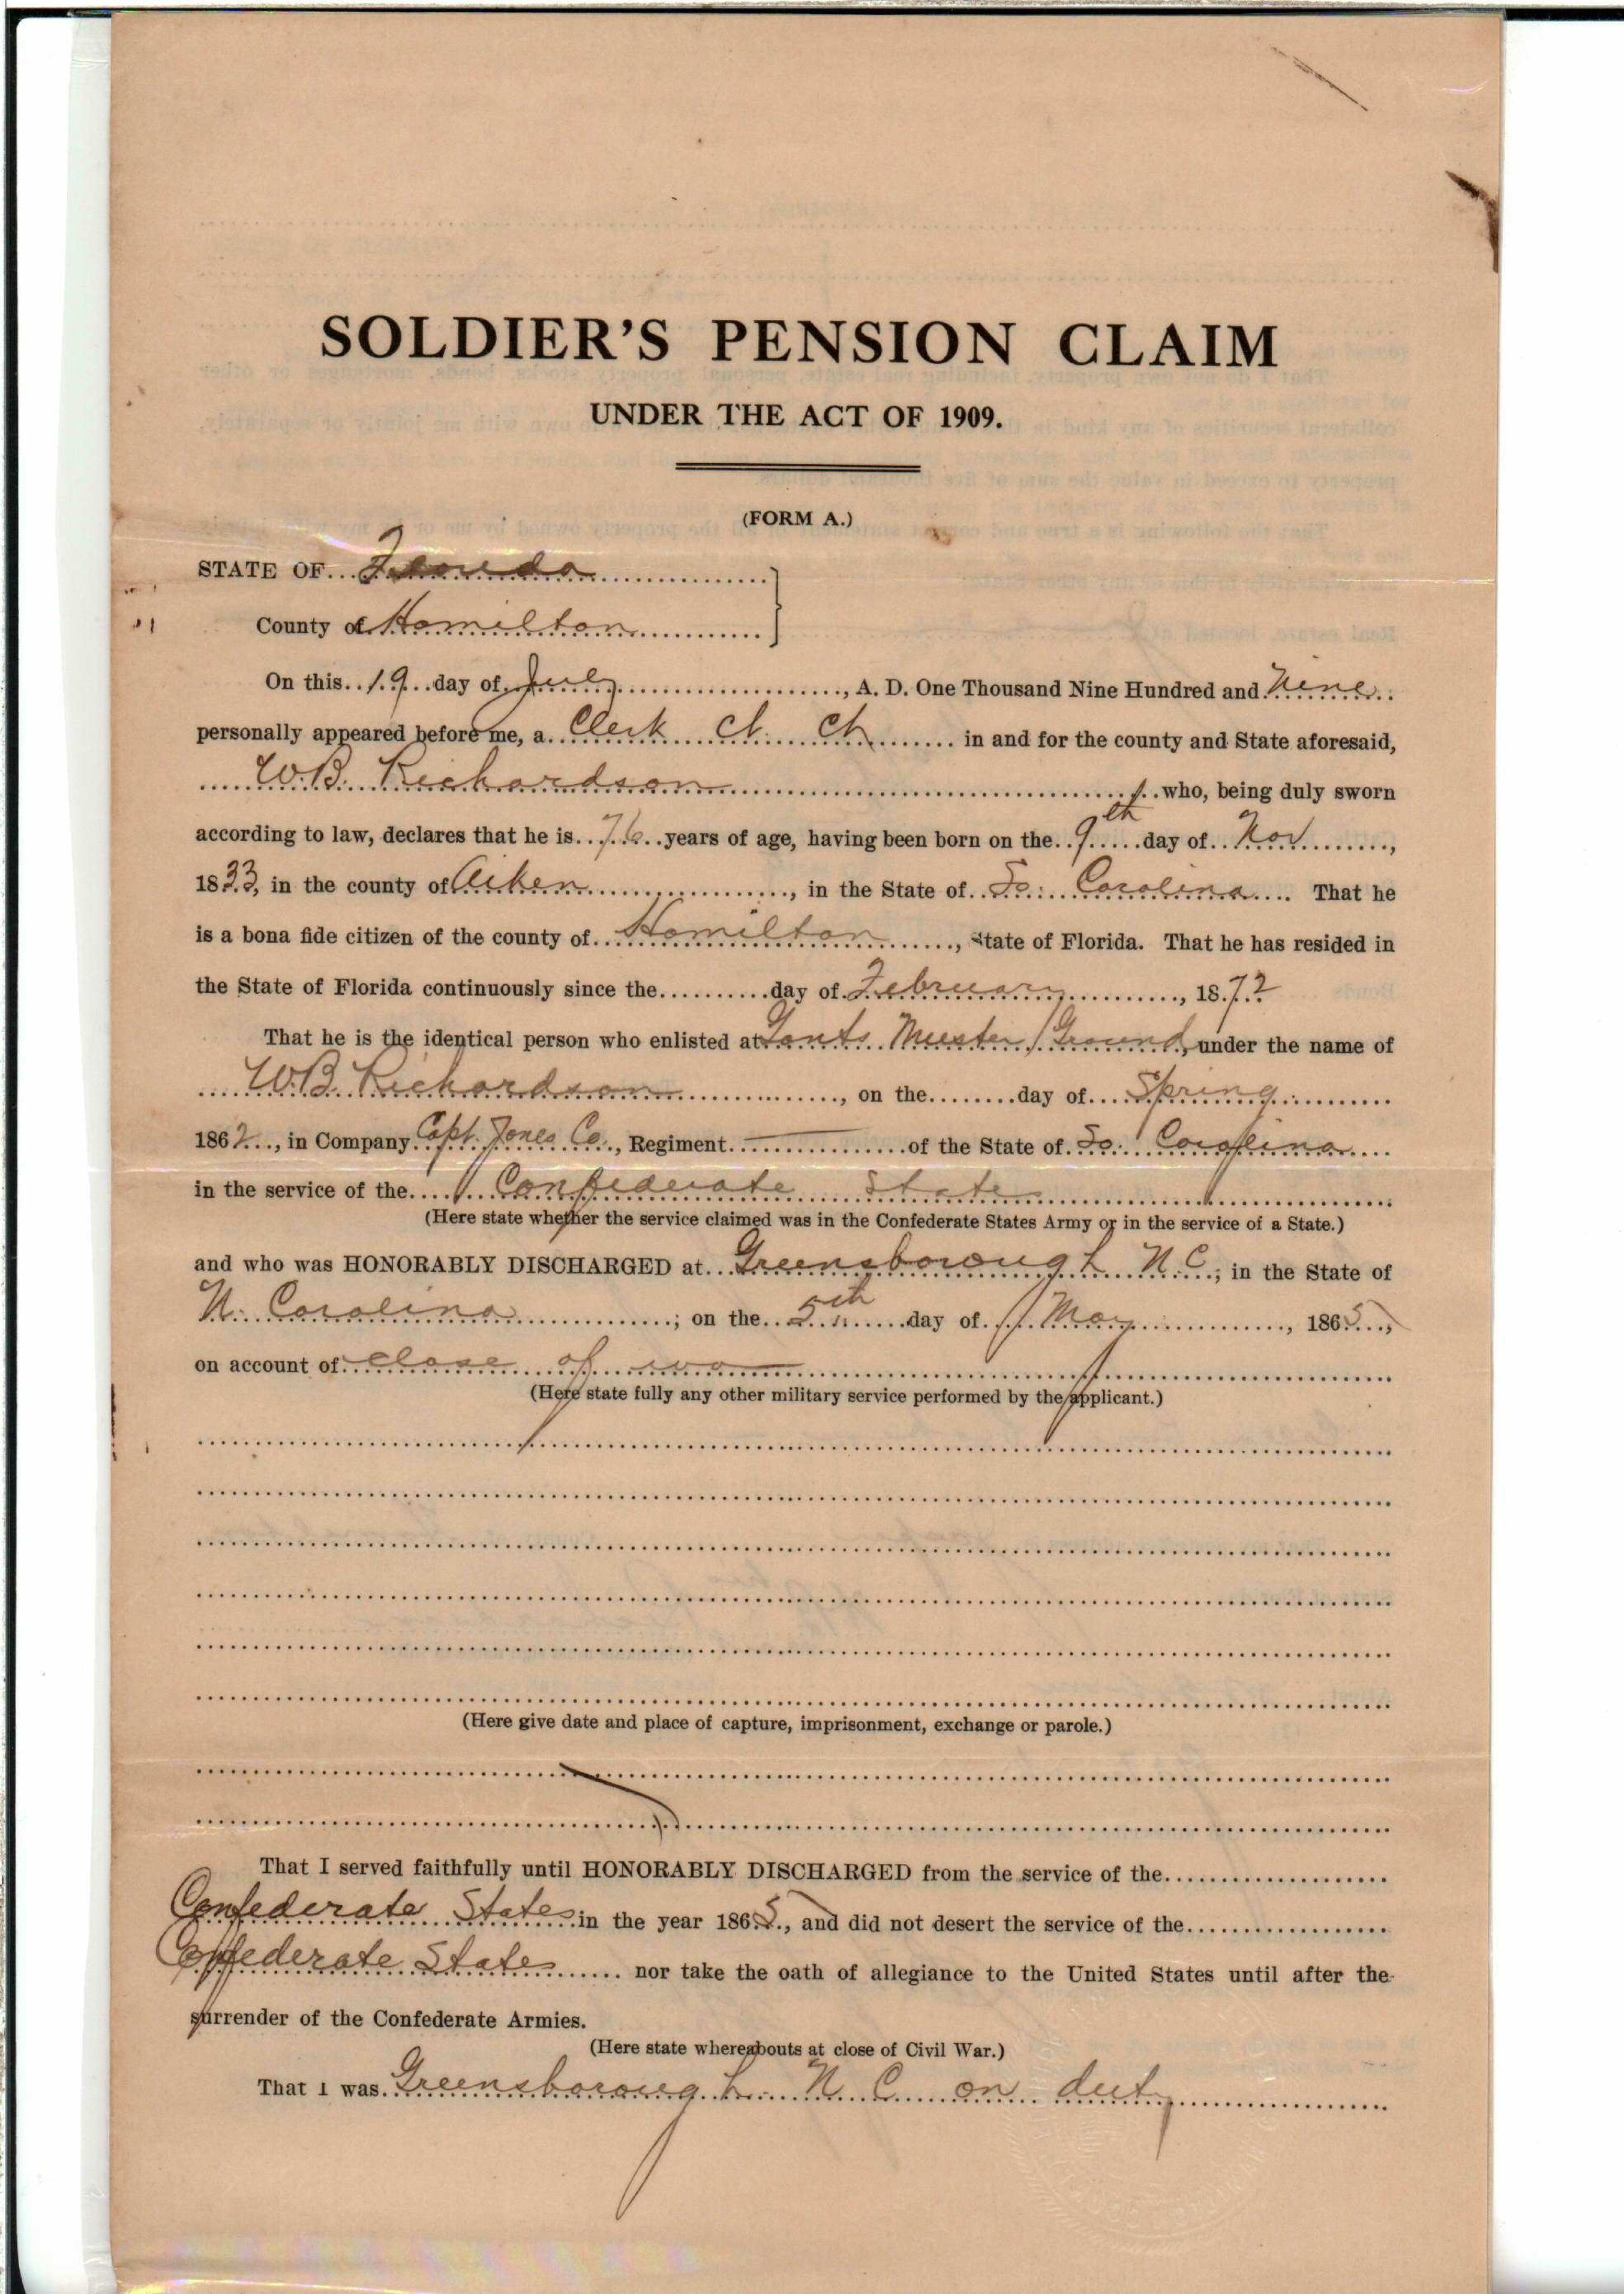 SOLDIER'S PENSION CLAIM
UNDER THE ACT OF 1909.
(FORM A.)
STATE OF Florida
County of Hamilton
On this 19 day of July, A. D. One Thousand Nine Hundred and Nine
personally appeared before me, a Clerk Ct. Ct. in and for the county and State aforesaid,
W.B. Richardson who, being duly sworn
according to law, declares that he is 76 years of age, having been born on the 9th day of Nov,
1833, in the county of Aiken, in the State of So. Carolina. That he
is a bona fide citizen of the county of Hamilton, State of Florida. That he has resided in
the State of Florida continuously since the day of February, 1872
That he is the identical person who enlisted at Gants Muster Ground, under the name of
W.B. Richardson, on the day of Spring
1862, in Company Capt. Jones Co., Regiment — of the State of So. Carolina
in the service of the Confederate State
(Here state whether the service claimed was in the Confederate States Army or in the service of a State.)
and who was HONORABLY DISCHARGED at Greensborough N.C.; in the State of
N. Carolina; on the 5th day of May, 1865,
on account of close of war
(Here state fully any other military service performed by the applicant.)
(Here give date and place of capture, imprisonment, exchange or parole.)
That I served faithfully until HONORABLY DISCHARGED from the service of the
Confederate States in the year 1865, and did not desert the service of the
Confederate States nor take the oath of allegiance to the United States until after the
surrender of the Confederate Armies.
(Here state whereabouts at close of Civil War.)
That I was Greensborough N. C. on duty